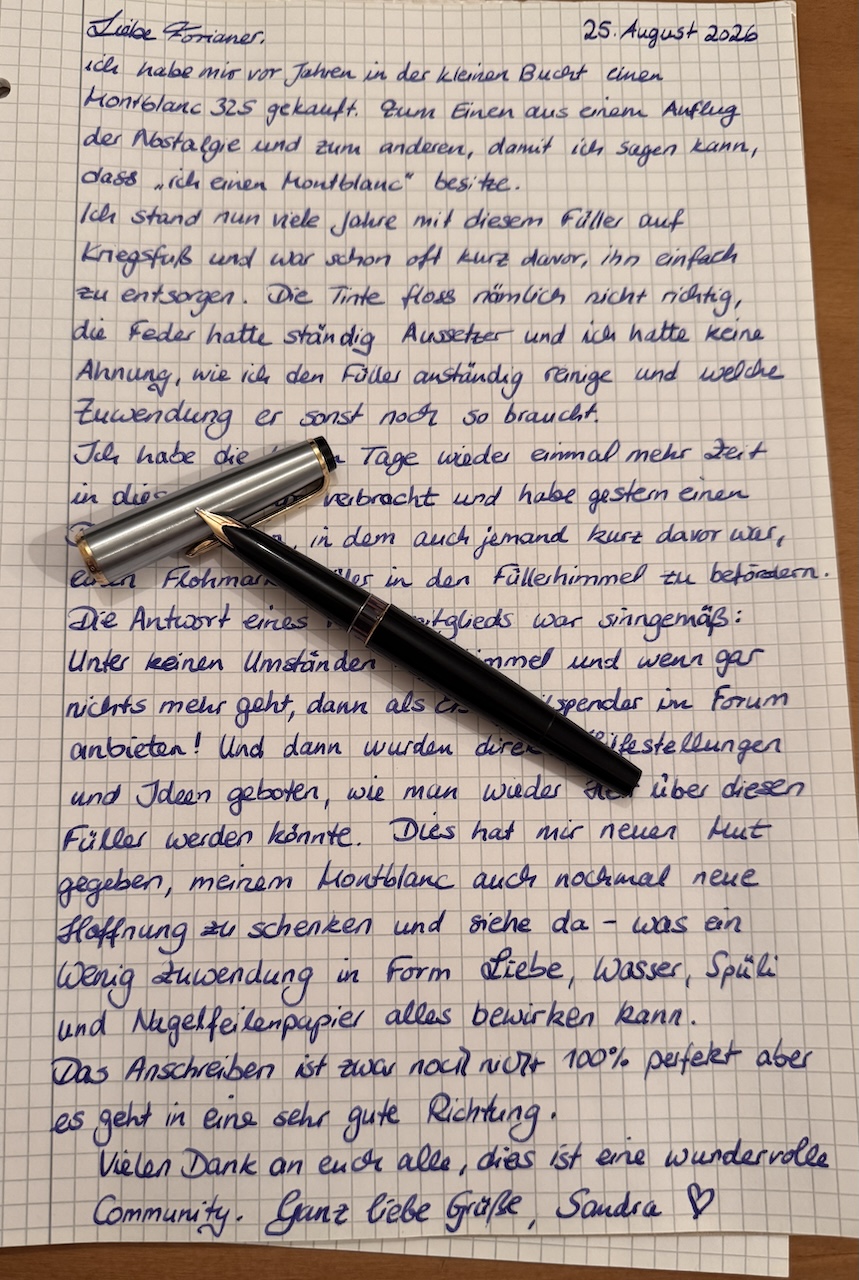 Liebe Forianer. 25. August 2026
ich habe mir vor Jahren in der kleinen Bucht einen
Montblanc 32S gekauft. Zum Einen aus einem Auflug
der Nostalgie und zum anderen, damit ich sagen kann,
dass „ich einen Montblanc“ besitze.
Ich stand nun viele Jahre mit diesem Füller auf
Kriegsfuß und war schon oft kurz davor, ihn einfach
zu entsorgen. Die Tinte floss nämlich nicht richtig,
die Feder hatte ständig Aussetzer und ich hatte keine
Ahnung, wie ich den Füller anständig reinige und welche
Zuwendung er sonst noch so braucht.
Ich habe die Tage wieder einmal mehr Zeit
in verbracht und habe gestern einen
, in dem auch jemand kurz davor war,
einen in den Füllerhimmel zu befördern.
Die Antwort eines war sinngemäß:
Unter keinen Umständen und wenn gar
nichts mehr geht, dann als im Forum
anbieten! Und dann wurden Hilfestellungen
und Ideen geboten, wie man wieder über diesen
Füller werden könnte. Dies hat mir neuen Mut
gegeben, meinem Montblanc auch nochmal neue
Hoffnung zu schenken und siehe da – was ein
wenig Zuwendung in Form Liebe, Wasser, Spüli
und Nagelfeilenpapier alles bewirken kann.
Das Anschreiben ist zwar noch nicht 100% perfekt aber
es geht in eine sehr gute Richtung.
Vielen Dank an euch alle, dies ist eine wundervolle
Community. Ganz liebe Grüße, Sandra ♡